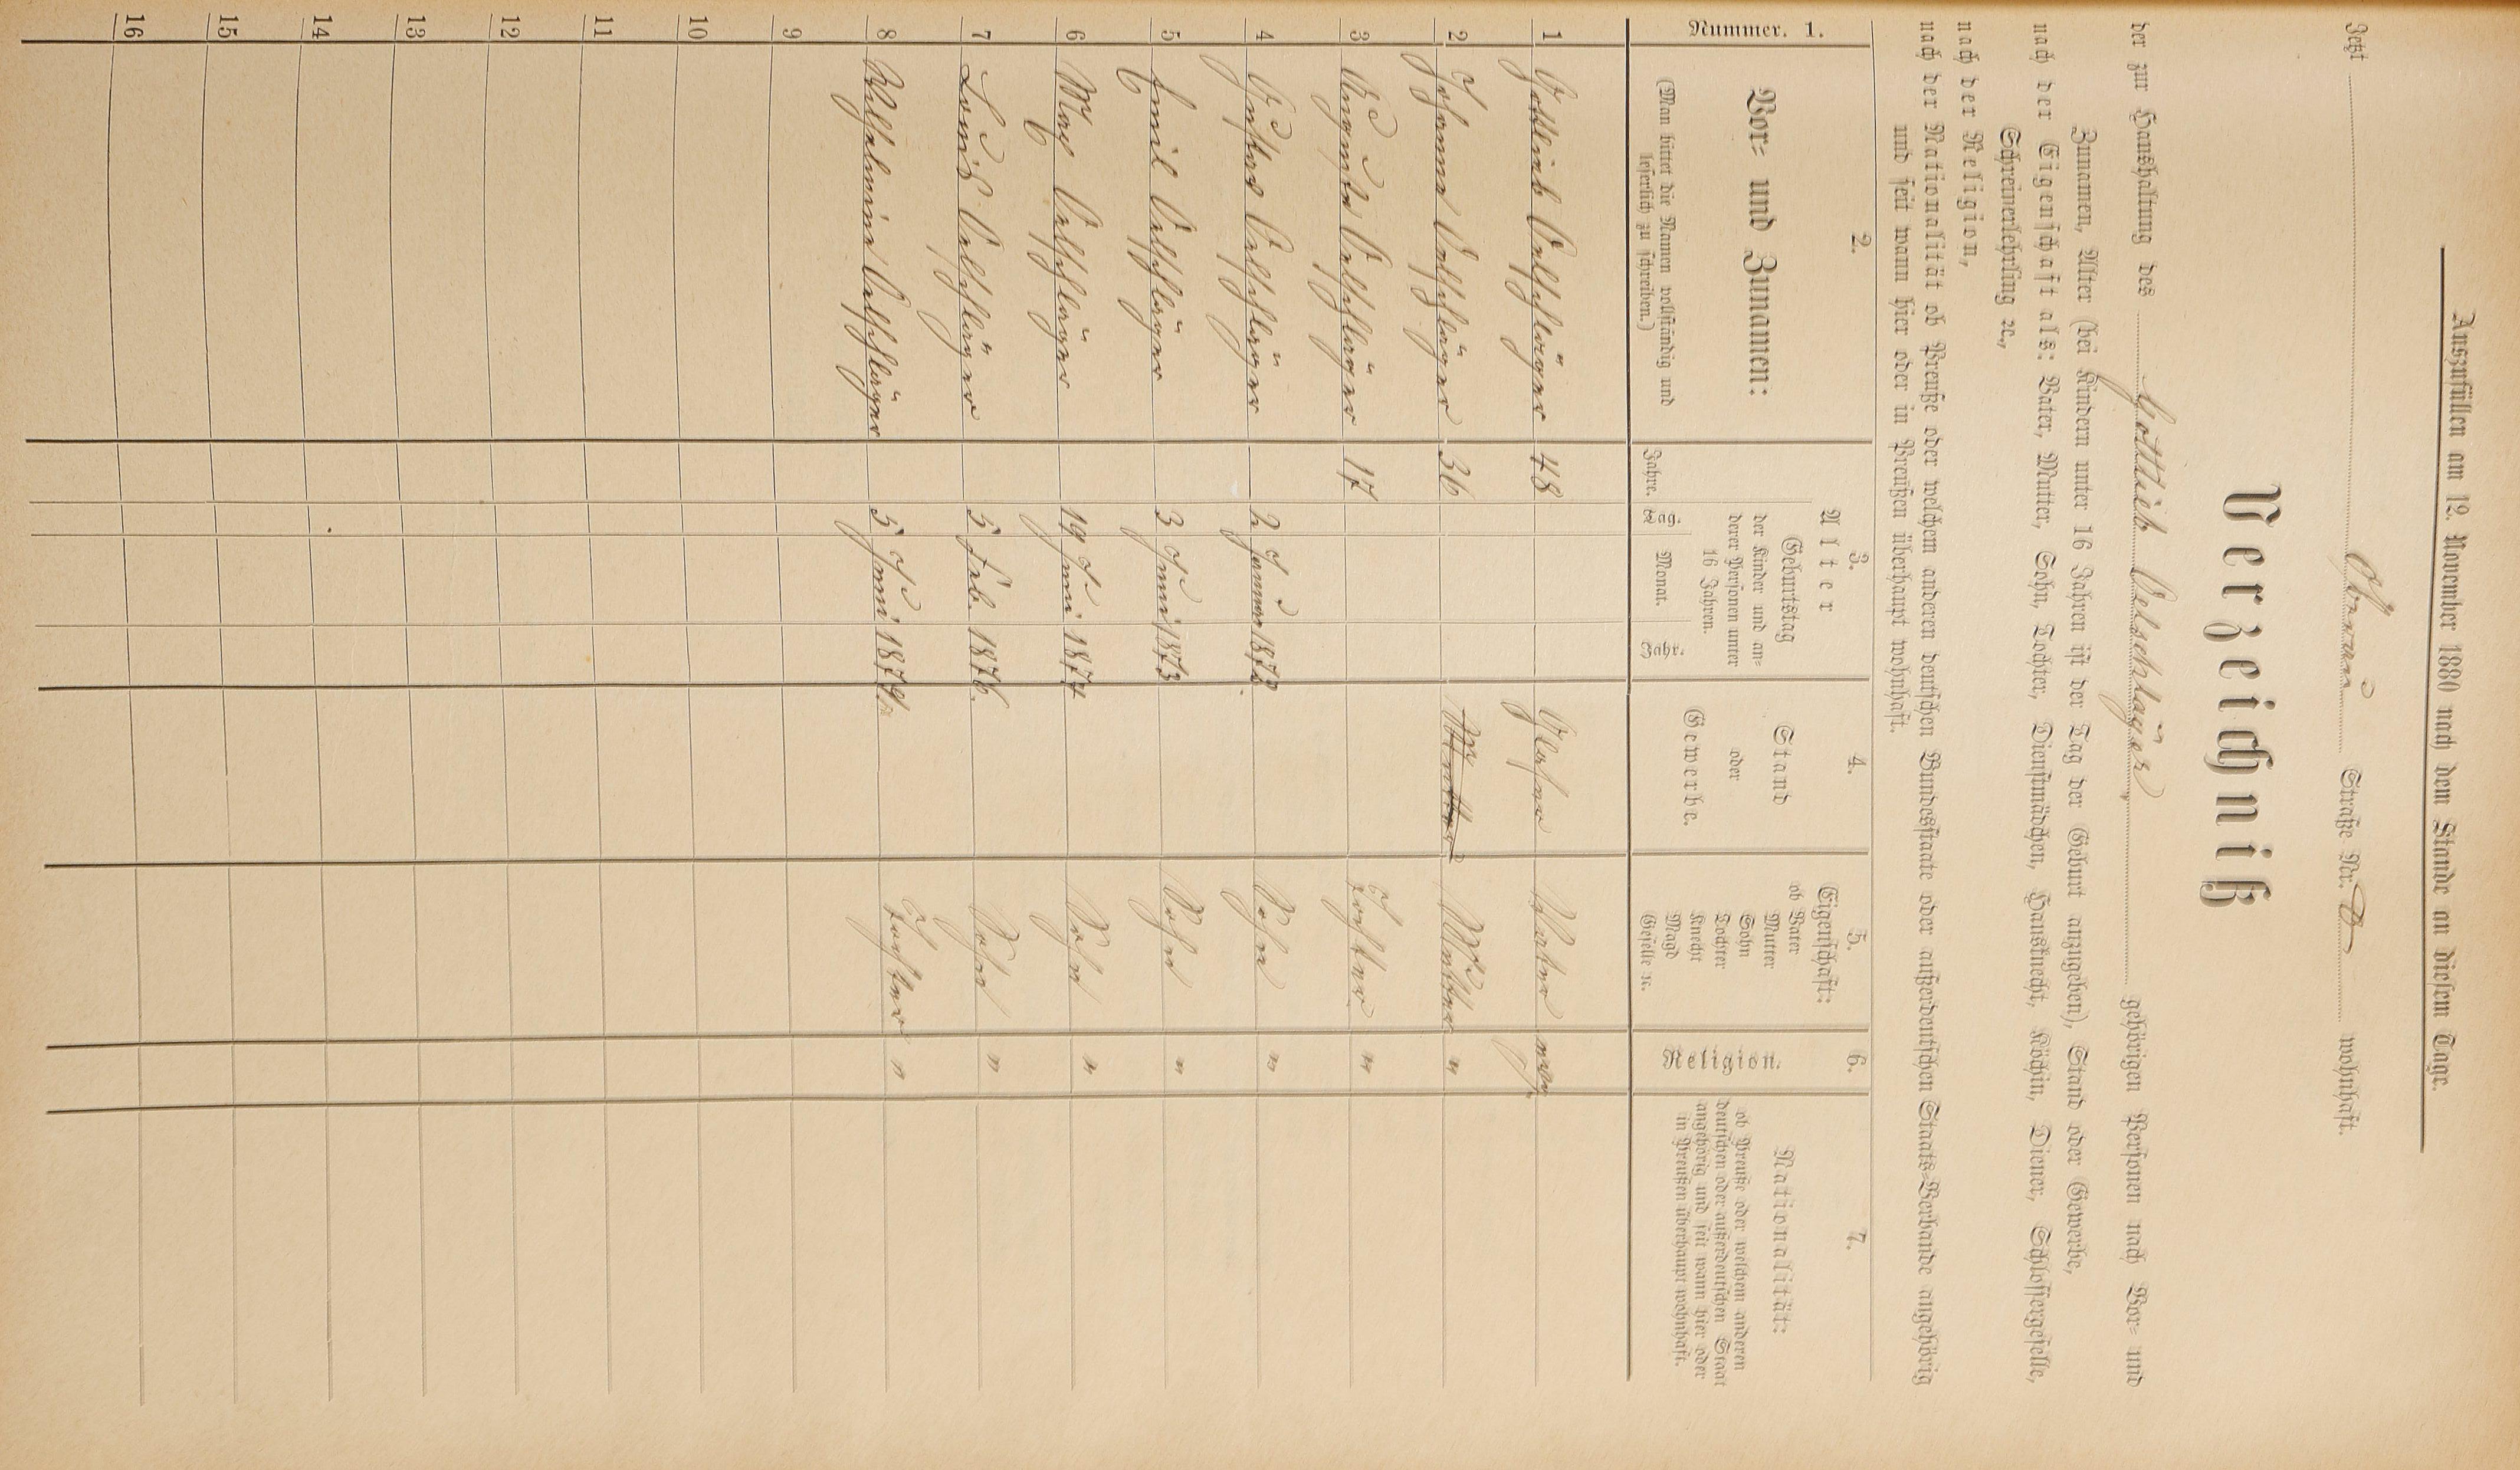 Auszufüllen am 12. November 1880 nach dem Stande an diesem Tage.
Jetzt Straße Nr. wohnhaft.
Verzeichniß
der zur Haushaltung des Gottlieb Oelschläger gehörigen Personen nach Vor- und
Zunamen, Alter (bei Kindern unter 16 Jahren ist der Tag der Geburt anzugeben), Stand oder Gewerbe,
nach der Eigenschaft als: Vater, Mutter, Sohn, Tochter, Dienstmädchen, Hausknecht, Köchin, Diener, Schlossergeselle,
Schreinerlehrling ꝛc.,
nach der Religion,
nach der Nationalität ob Preuße oder welchem anderen deutschen Bundesstaate oder außerdeutschen Staats-Verbande angehörig
und seit wann hier oder in Preußen überhaupt wohnhaft.
Nummer. 1.
2.
Vor- und Zunamen:
(Man bittet die Namen vollständig und
leserlich zu schreiben.)
3.
Alter
Jahre.
Geburtstag
der Kinder und an-
derer Personen unter
16 Jahren.
Tag. Monat. Jahr.
4.
Stand
oder
Gewerbe.
5.
Eigenschaft:
ob Vater
Mutter
Sohn
Tochter
Knecht
Magd
Geselle ꝛc.
6.
Religion.
7.
Nationalität:
ob Preuße oder welchem anderen
deutschen oder außerdeutschen Staat
angehörig und seit wann hier oder
in Preußen überhaupt wohnhaft.
1 Gottlieb Oelschläger 48 Glaser Vater evg.
2 Johanna Oelschläger 36 Mutter Mutter "
3 Auguste Oelschläger 17 Tochter "
4 Gustav Oelschläger 2 Januar 1872 Sohn "
5 Emil Oelschläger 3 Juni 1873 Sohn "
6 Max Oelschläger 19 Juni 1874 Sohn "
7 Louis Oelschläger 5 Feb. 1876. Sohn "
8 Wilhelmine Oelschläger 5 Juni 1879. Tochter "
9
10
11
12
13
14
15
16